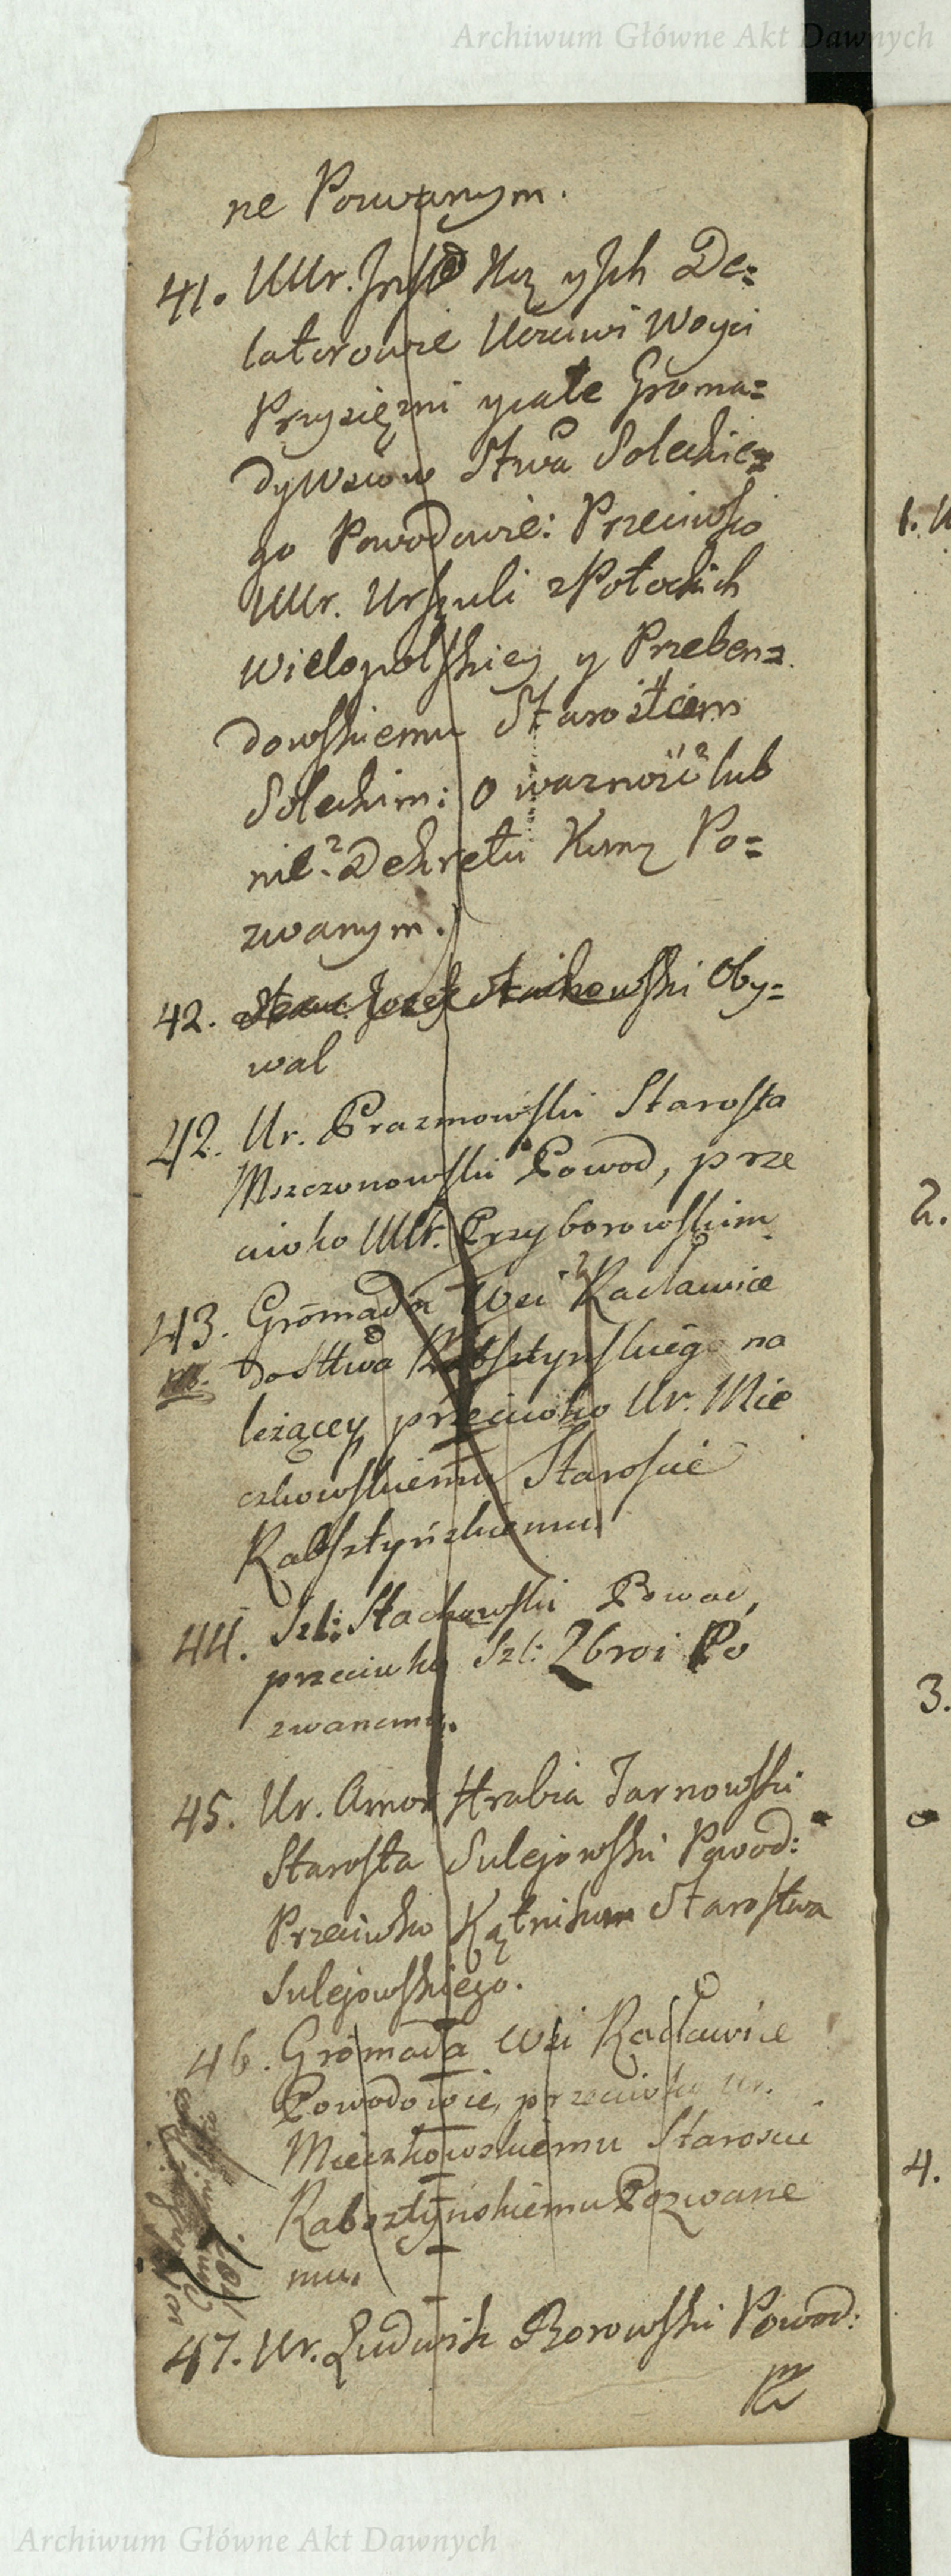 Archiwum Główne Akt Dawnych
ne Pozwanym.
41. UUr. Inst Krz y Ich De=
latorowie Uczciwi Woyci
Przysiężni y całe Groma=
dy Wsiow Stwa Soleckie=
go Powodowie: Przeciwko
UUr. Urszuli z Potockich
Wielopolskiey y Przeben=
dowskiemu Starostom
Soleckim: O ważność lub
nie? Dekretu Kom Po=
zwanym.
42. Józef Stachowski Oby=
wal
42. Ur. Prazmowski Starosta
Mszczonowski Powod, prze
ciwko UUr. Przyborowskim
43. Gromada Wsi Racławice
do Sttwa Rabsztynskiego na
leżącey przeciwko Ur. Mie
czkowskiemu Staroscie
Rabsztyńskiemu
44. Szl: Stachowski Powod,
przeciwko Szl: Zbroi Po
zwanemu.
45. Ur. Amor Hrabia Tarnowski
Starosta Sulejowski Powod:
Przeciwko Kątnikom Starostwa
Sulejowskiego.
46. Gromada Wsi Racławice
Powodowie, przeciwko Ur.
Mieczkowskiemu Staroscie
Rabsztyńskiemu Pozwane
mu.
47. Ur. Ludwik Borowski Powod:
1. U
2.
3.
4.
Archiwum Główne Akt Dawnych